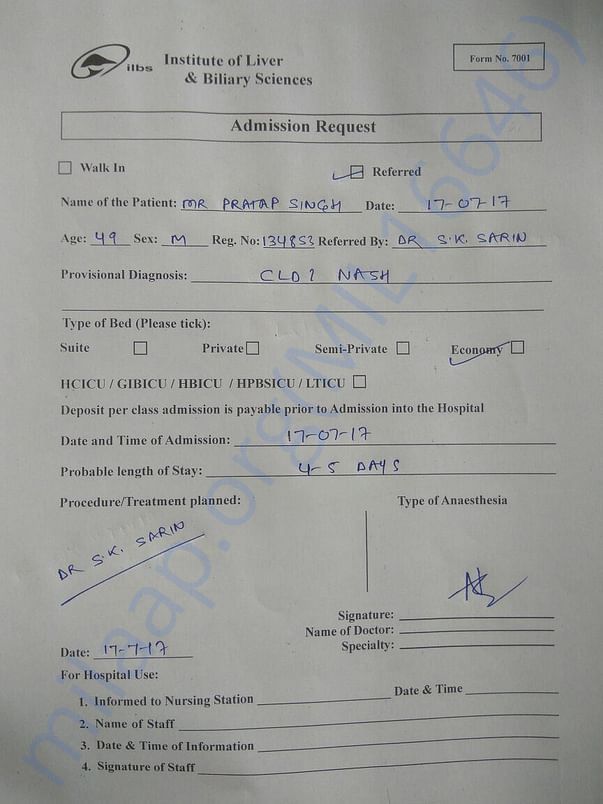 ilbs Institute of Liver
& Biliary Sciences
Form No. 7001
Admission Request
Walk In
Referred
Name of the Patient: MR PRATAP SINGH Date: 17-07-17
Age: 49 Sex: M Reg. No: 134853 Referred By: DR S.K. SARIN
Provisional Diagnosis: CLD ? NASH
Type of Bed (Please tick):
Suite Private Semi-Private Economy
HCICU / GIBICU / HBICU / HPBSICU / LTICU
Deposit per class admission is payable prior to Admission into the Hospital
Date and Time of Admission: 17-07-17
Probable length of Stay: 4-5 DAYS
Procedure/Treatment planned: Type of Anaesthesia
DR S.K. SARIN
Signature:
Name of Doctor:
Specialty:
Date: 17-7-17
For Hospital Use:
1. Informed to Nursing Station Date & Time
2. Name of Staff
3. Date & Time of Information
4. Signature of Staff
milaap.org(MIL16646)